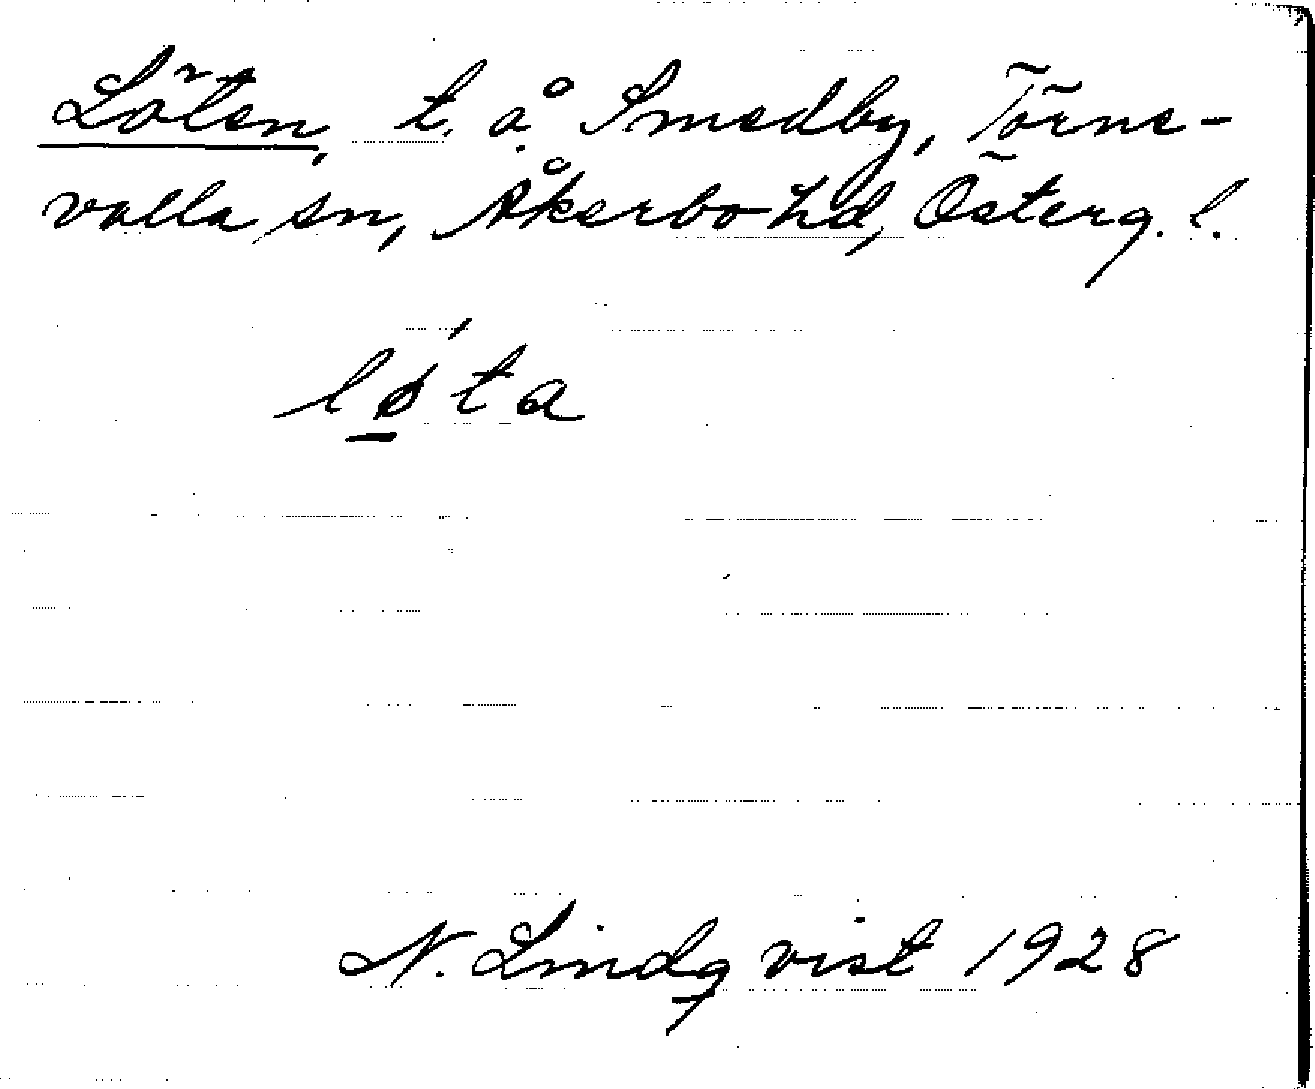 Löten, t. å Smedby, Törne-
valla sn, Åkerbo hd, Österg. l.
lǿ̱ta
N. Lindqvist 1928